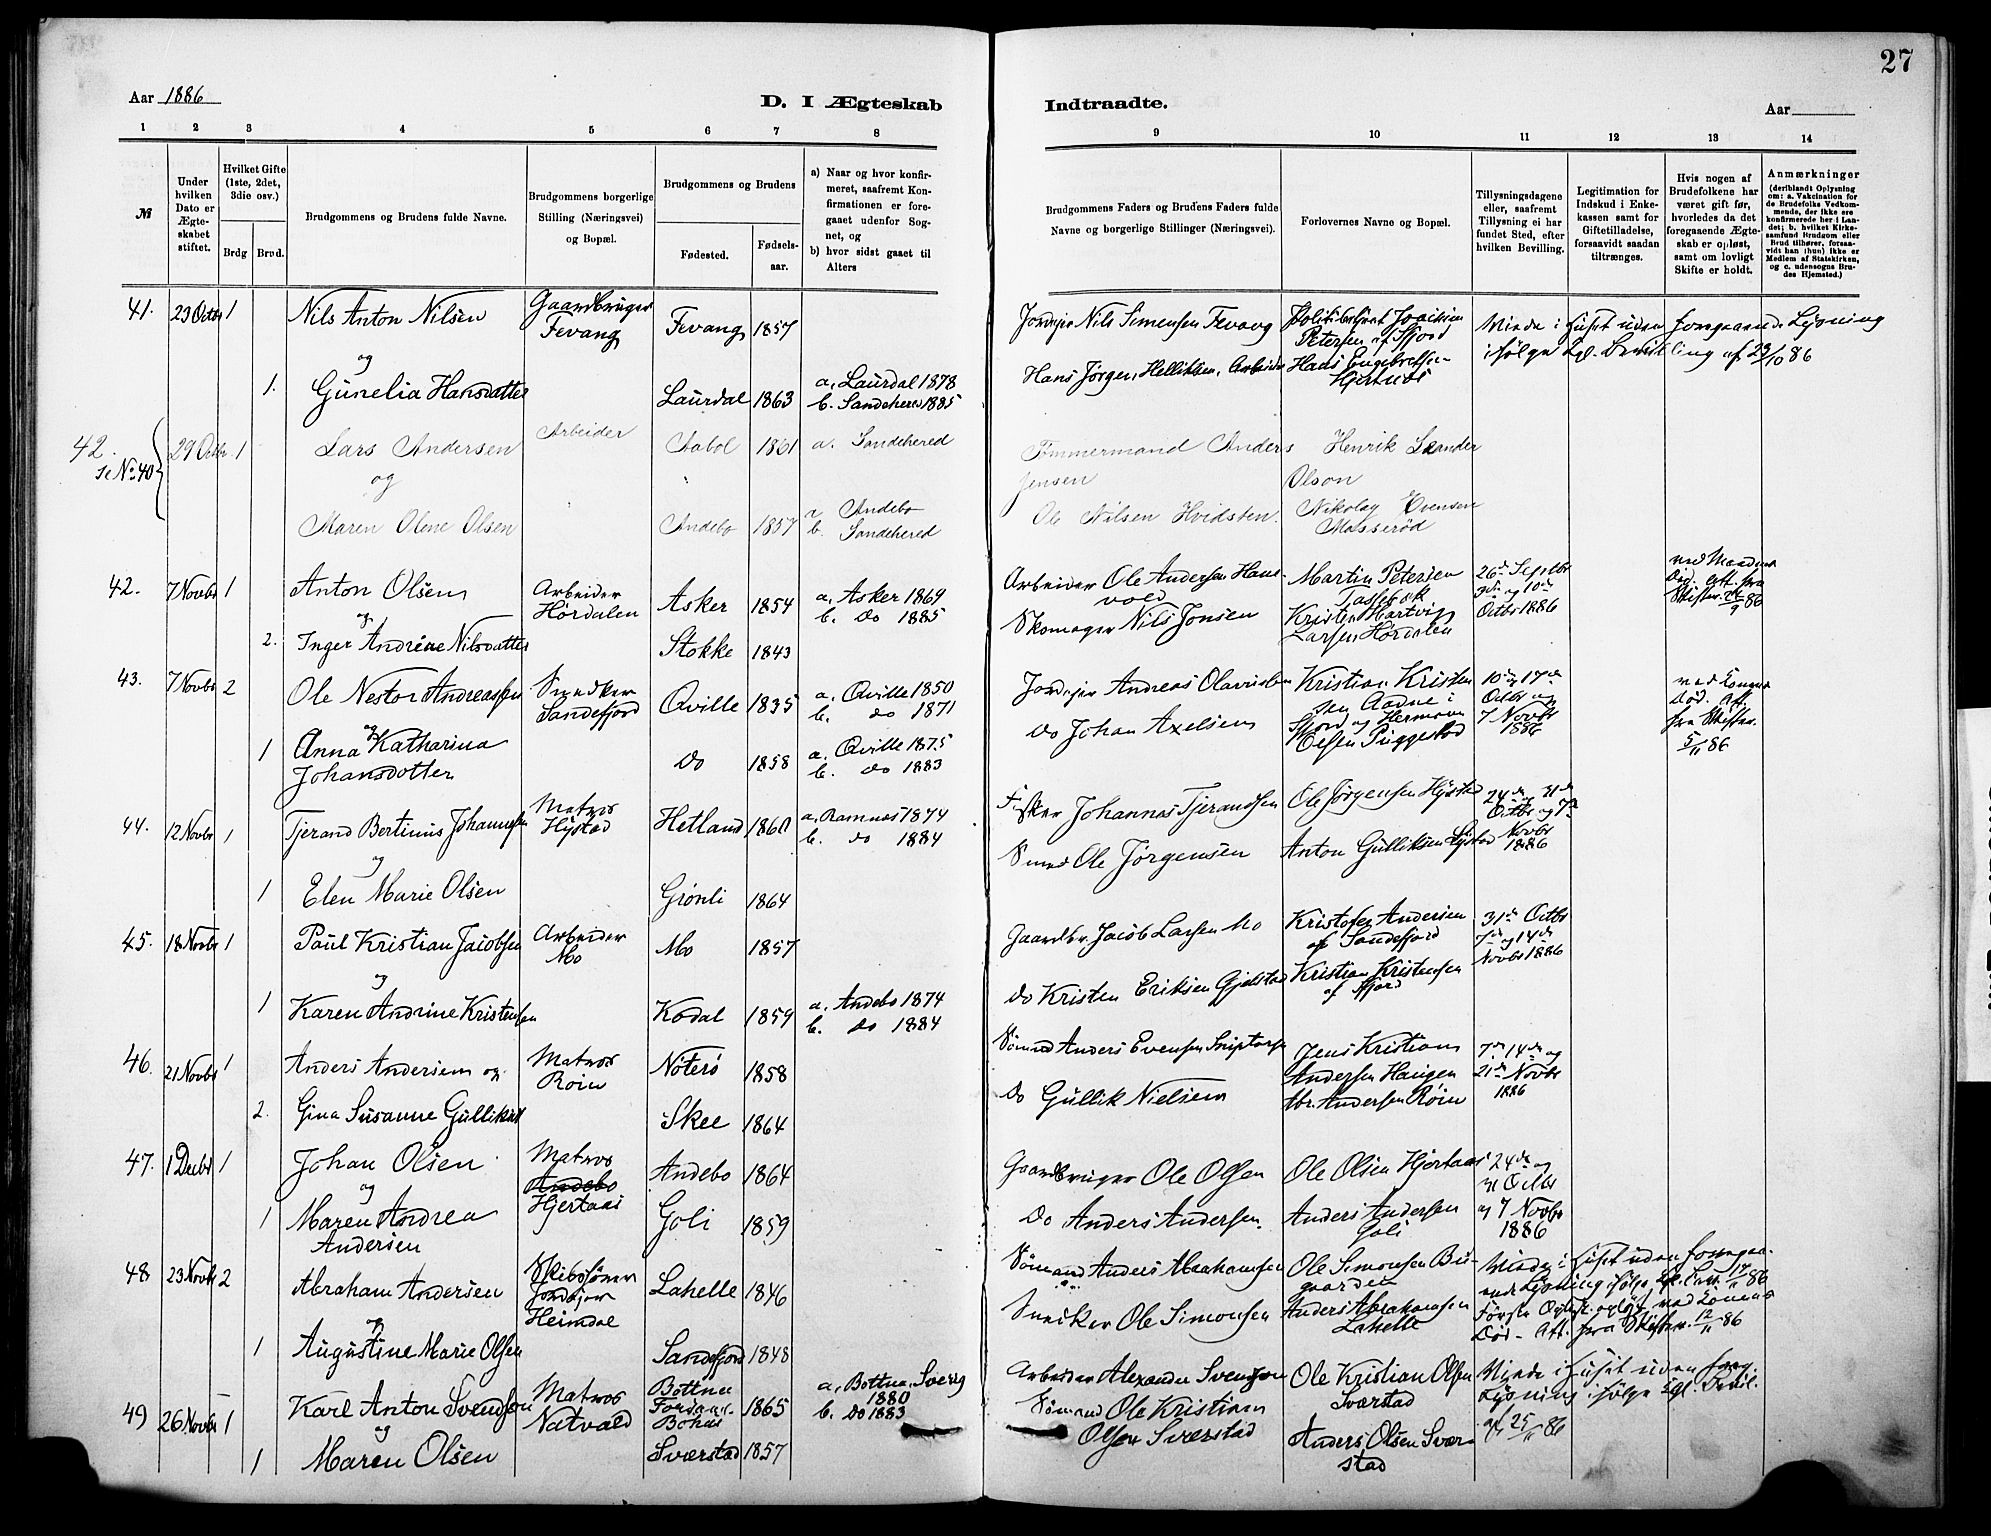 27
Aar 1886
D. I Ægteskab Indtraadte.
Aar
1 2 3 4 5 6 7 8 9 10 11 12 13 14
№
Under hvilken Dato er Ægte-skabet stiftet.
Hvilket Gifte (1ste, 2det, 3die osv.)
Brdg Brud.
Brudgommens og Brudens fulde Navne.
Brudgommens borgerlige Stilling (Næringsvei) og Bopæl.
Brudgommens og Brudens
Fødested. Fødsels-aar.
a) Naar og hvor konfir-meret, saafremt Kon-firmationen er fore-gaaet udenfor Sog-net, og
b) hvor sidst gaaet til Alters
Brudgommens Faders og Brudens Faders fulde Navne og borgerlige Stillinger (Næringsvei).
Forlovernes Navne og Bopæl.
Tillysningsdagene eller, saafremt Tillysning ei har fundet Sted, efter hvilken Bevilling.
Legitimation for Indskud i Enke-kassen samt for Giftetilladelse, forsaavidt saadan tiltrænges.
Hvis nogen af Brudefolkene har været gift før, hvorledes da det foregaaende Ægte-skab er opløst, samt om lovligt Skifte er holdt.
Anmærkninger (deriblandt Oplysning om: a. Vakcination for de Brudefolks Vedkom-mende, der ikke ere konfirmerede her i Lan-det; b. hvilket Kirke-samfund Brudgom eller Brud tilhører, forsaa-vidt han (hun) ikke er Medlem af Statskirken, og c. udensogns Bru-des Hjemsted.)
41. 23 Octbr 1 Nils Anton Nilsen Gaardbruger Fevang Fevang 1857 Jordejer Nils Simensen Fevang Politibetjent Joachim Petersen af Sfjord Viede i Huset uden foregaaende Lysning ifølge Kgl. Bevilling af 23/10 86
og
1. Gunelia Hansdatter Laurdal 1863 a. Laurdal 1878 b. Sandeherred 1885 Hans Jørgen Helliksen, Arbeider Hans Engebretsen Hjertnes
42. se No 40 29 Octbr 1 Lars Andersen Arbeider Aabol 1861 a. Sandehered Tømmermand Anders Jensen Henrik Leander Olson
og
Maren Olene Olsen Andebo 1857 a Andebo b. Sandehered Ole Nilsen Hvidsten. Nikolay Evensen Masserød
42. 7 Novbr 1 Anton Olsen Arbeider Hørdalen Asker 1854 a. Asker 1869 b. do 1885 Arbeider Ole Andersen Hans-vold Martin Petersen Tassebæk 26de Septbr 3die og 10de Octbr 1886 ved Mandens Død. Att. fra Skifter. 24/9 86
og
2. Inger Andrine Nilsdatter Stokke 1843 Skomager Nils Jonsen Kristen Hartvig Larsen Hørdalen
43. 7 Novbr 2 Ole Nestor Andreassen Snedker Sandefjord Qville 1835 a. Qville 1850 b. do 1871 Jordejer Andreas Olavussen Kristian Kristen-sen Aadne i Sfjord og Herman Olsen Puggestad 10de og 17de Octbr og 7 Novbr 1886 ved Konens Død. Att. fra Skifter. 5/11 86
og
1 Anna Katharina Johansdotter do 1858 a. Qville 1875 b. do 1883 do Johan Axelsen
44. 12 Novbr 1 Tjerand Bertinius Johannesen Matros Hystad Hetland 1860 a. Ramnæs 1874 b. do 1884 Fisker Johannes Tjerandsen Ole Jørgensen Hystad 24de og 31de Octbr og 7de Novbr 1886
og
1 Elen Marie Olsen Grønli 1864 Smed Ole Jørgensen Anton Gulliksen Hystad
45. 18 Novbr 1 Paul Kristian Jacobsen Arbeider Mo Mo 1857 Gaardbr. Jacob Larsen Mo Kristofer Andersen af Sandefjord 31te Octbr 7de og 14de Novbr 1886
og
1 Karen Andrine Kristensen Kodal 1859 a. Andebo 1874 b. do 1884 do Kristen Eriksen Gjelstad Kristian Kristensen af Sfjord
46. 21 Novbr 1 Anders Andersen og Matros Røin Nøterø 1858 Sømand Anders Evensen Sniptorp Jens Kristian Andersen Haugen 7de 14de og 21de Novbr 1886
2. Gina Susanne Gulliksen Skee 1864 do Gullik Nielsen Abr. Andersen Røin
47. 1 Decbr 1 Johan Olsen Matros Andebo Hjertaas Andebo 1864 Gaardbruger Ole Olsen Ole Olsen Hjertaas 24de og 31 Octbr og 7 Novbr 1886
og
1 Maren Andrea Andersen Goli 1859 do Anders Andersen. Anders Andersen Goli
48 23 Novbr 2 Abraham Andersen Skibstømrer Jordejer Heimdal Lahelle 1846 Sømand Anders Abrahamsen Ole Simonsen Bu-gaarden Viede i Huset uden foregaa-ende Lysning ifølge Kgl. Bev. 17/11 86
og
1 Augustine Marie Olsen Sandefjord 1848 Snedker Ole Simonsen Anders Abrahamsen Lahelle Første Ægtesk. opløst ved Konens Død - Att. fra Skifter. 12/11 86
49 26 Novbr 1 Karl Anton Svendsen Matros Natvald Bottna Bohus 1865 a. Bottna, Sverig 1880 b. do 1883 Arbeider Alexander Svensson Ole Kristian Olsen Sværstad Viede i Huset uden foreg. Lysning ifølge Kgl. Bevil. af 25/11 86
og
1 Maren Olsen Sværstad 1857 Sømand Ole Kristian Olsen Sværstad Anders Olsen Svær-stad